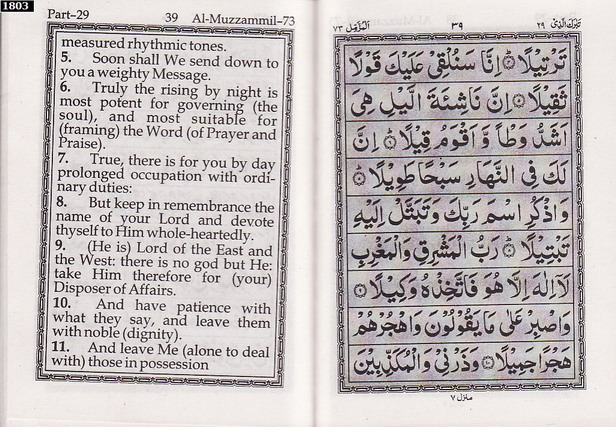 1803
Part–29 39 Al-Muzzammil–73
measured rhythmic tones.
5. Soon shall We send down to
you a weighty Message.
6. Truly the rising by night is
most potent for governing (the
soul), and most suitable for
(framing) the Word (of Prayer and
Praise).
7. True, there is for you by day
prolonged occupation with ordi-
nary duties:
8. But keep in remembrance the
name of your Lord and devote
thyself to Him whole-heartedly.
9. (He is) Lord of the East and
the West: there is no god but He:
take Him therefore for (your)
Disposer of Affairs.
10. And have patience with
what they say, and leave them
with noble (dignity).
11. And leave Me (alone to deal
with) those in possession
تبٰرك الذی ۲۹ ۳۹ المزمل ۷۳
تَرْتِيْلًا ۞ اِنَّا سَنُلْقِيْ عَلَيْكَ قَوْلًا
ثَقِيْلًا ۞ اِنَّ نَاشِئَةَ الَّيْلِ هِيَ
اَشَدُّ وَطْاً وَّ اَقْوَمُ قِيْلًا ۞ اِنَّ
لَكَ فِي النَّهَارِ سَبْحًا طَوِيْلًا ۞
وَاذْكُرِ اسْمَ رَبِّكَ وَتَبَتَّلْ اِلَيْهِ
تَبْتِيْلًا ۞ رَبُّ الْمَشْرِقِ وَالْمَغْرِبِ
لَاۤ اِلٰهَ اِلَّا هُوَ فَاتَّخِذْهُ وَكِيْلًا ۞
وَاصْبِرْ عَلٰى مَا يَقُوْلُوْنَ وَاهْجُرْهُمْ
هَجْرًا جَمِيْلًا ۞ وَذَرْنِيْ وَالْمُكَذِّبِيْنَ
منزل ۷